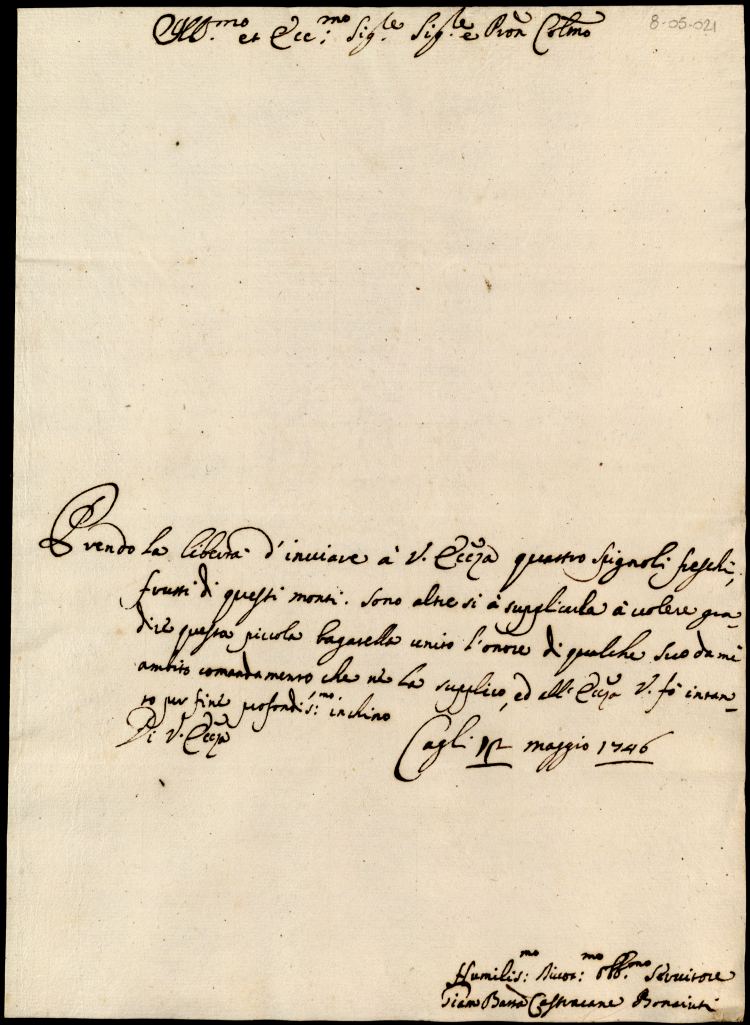 8-05-021
Ill.mo et Ecc:mo Sig.le Sig.le e Pron Colmo
Prendo la libertà d'inviare à V. Eccza quattro spignoli freschi,
frutti di questi monti. Sono altresi à supplicarla à volere gra-
dire questa piccola bagatella unito l'onore di qualche suo da mè
ambito comandamento che nè la supplico, ed all' Eccza V. fò intan-
to per fine profondis:mo inchino
Di V. Eccza
Cagli maggio 1746
Humilis:mo Divot:mo obb.mo Servitore
Giam Batta Castracane Bonciuti